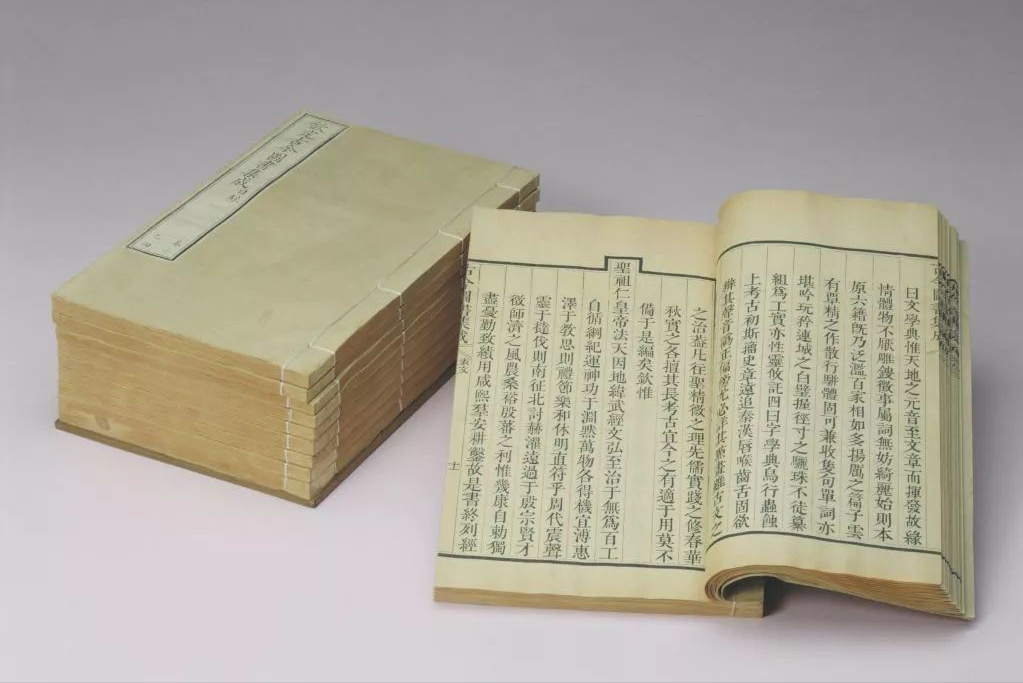 欽定古今圖書集成目錄
曰文學典惟天地之元音至文章而揮發故緣
情體物不厭雕鎪徵事屬詞無妨綺麗始則本
原六籍既乃泛濫百家相如多揚厲之篇子雲
有覃精之作散行駢體固可兼收隻句單詞亦
堪吟玩矜連城之白璧握徑寸之驪珠不徒纂
組爲工實亦性靈攸託四曰字學典鳥行蟲蝕
上考古初斯籀史章遠追秦漢唇喉齒舌固欲
辨其聲音譌正偏旁尤必詳其點畫雖古文之
之治蓋凡往聖精微之理先儒實踐之修春華
秋實之各擅其長考古宜今之有適于用莫不
備于是編矣欽惟
聖祖仁皇帝法天因地緯武經文弘至治于無爲百工
自循綱紀運神功于淵默萬物各得機宜溥惠
澤于教思則禮節樂和休明直符乎周代震聲
靈于撻伐則南征北討赫濯遠過于殷宗賢才
徵師濟之風農桑裕殷蕃之利惟幾康自勅獨
盡憂勤致績用咸熙羣安耕鑿故是書終列經
古今圖書集成 表文 十一